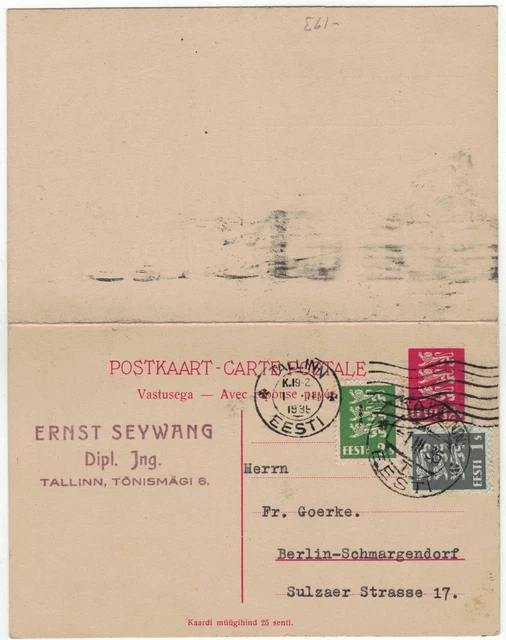 POSTKAART-CARTE POSTALE
Vastusega — Avec réponse payée
TALLINN
K.19-2
1938
EESTI
EESTI
EESTI 1 s
EESTI
ERNST SEYWANG
Dipl. Jng.
TALLINN, TÕNISMÄGI 6.
Herrn
Fr. Goerke.
Berlin-Schmargendorf
Sulzaer Strasse 17.
Kaardi müügihind 25 senti.